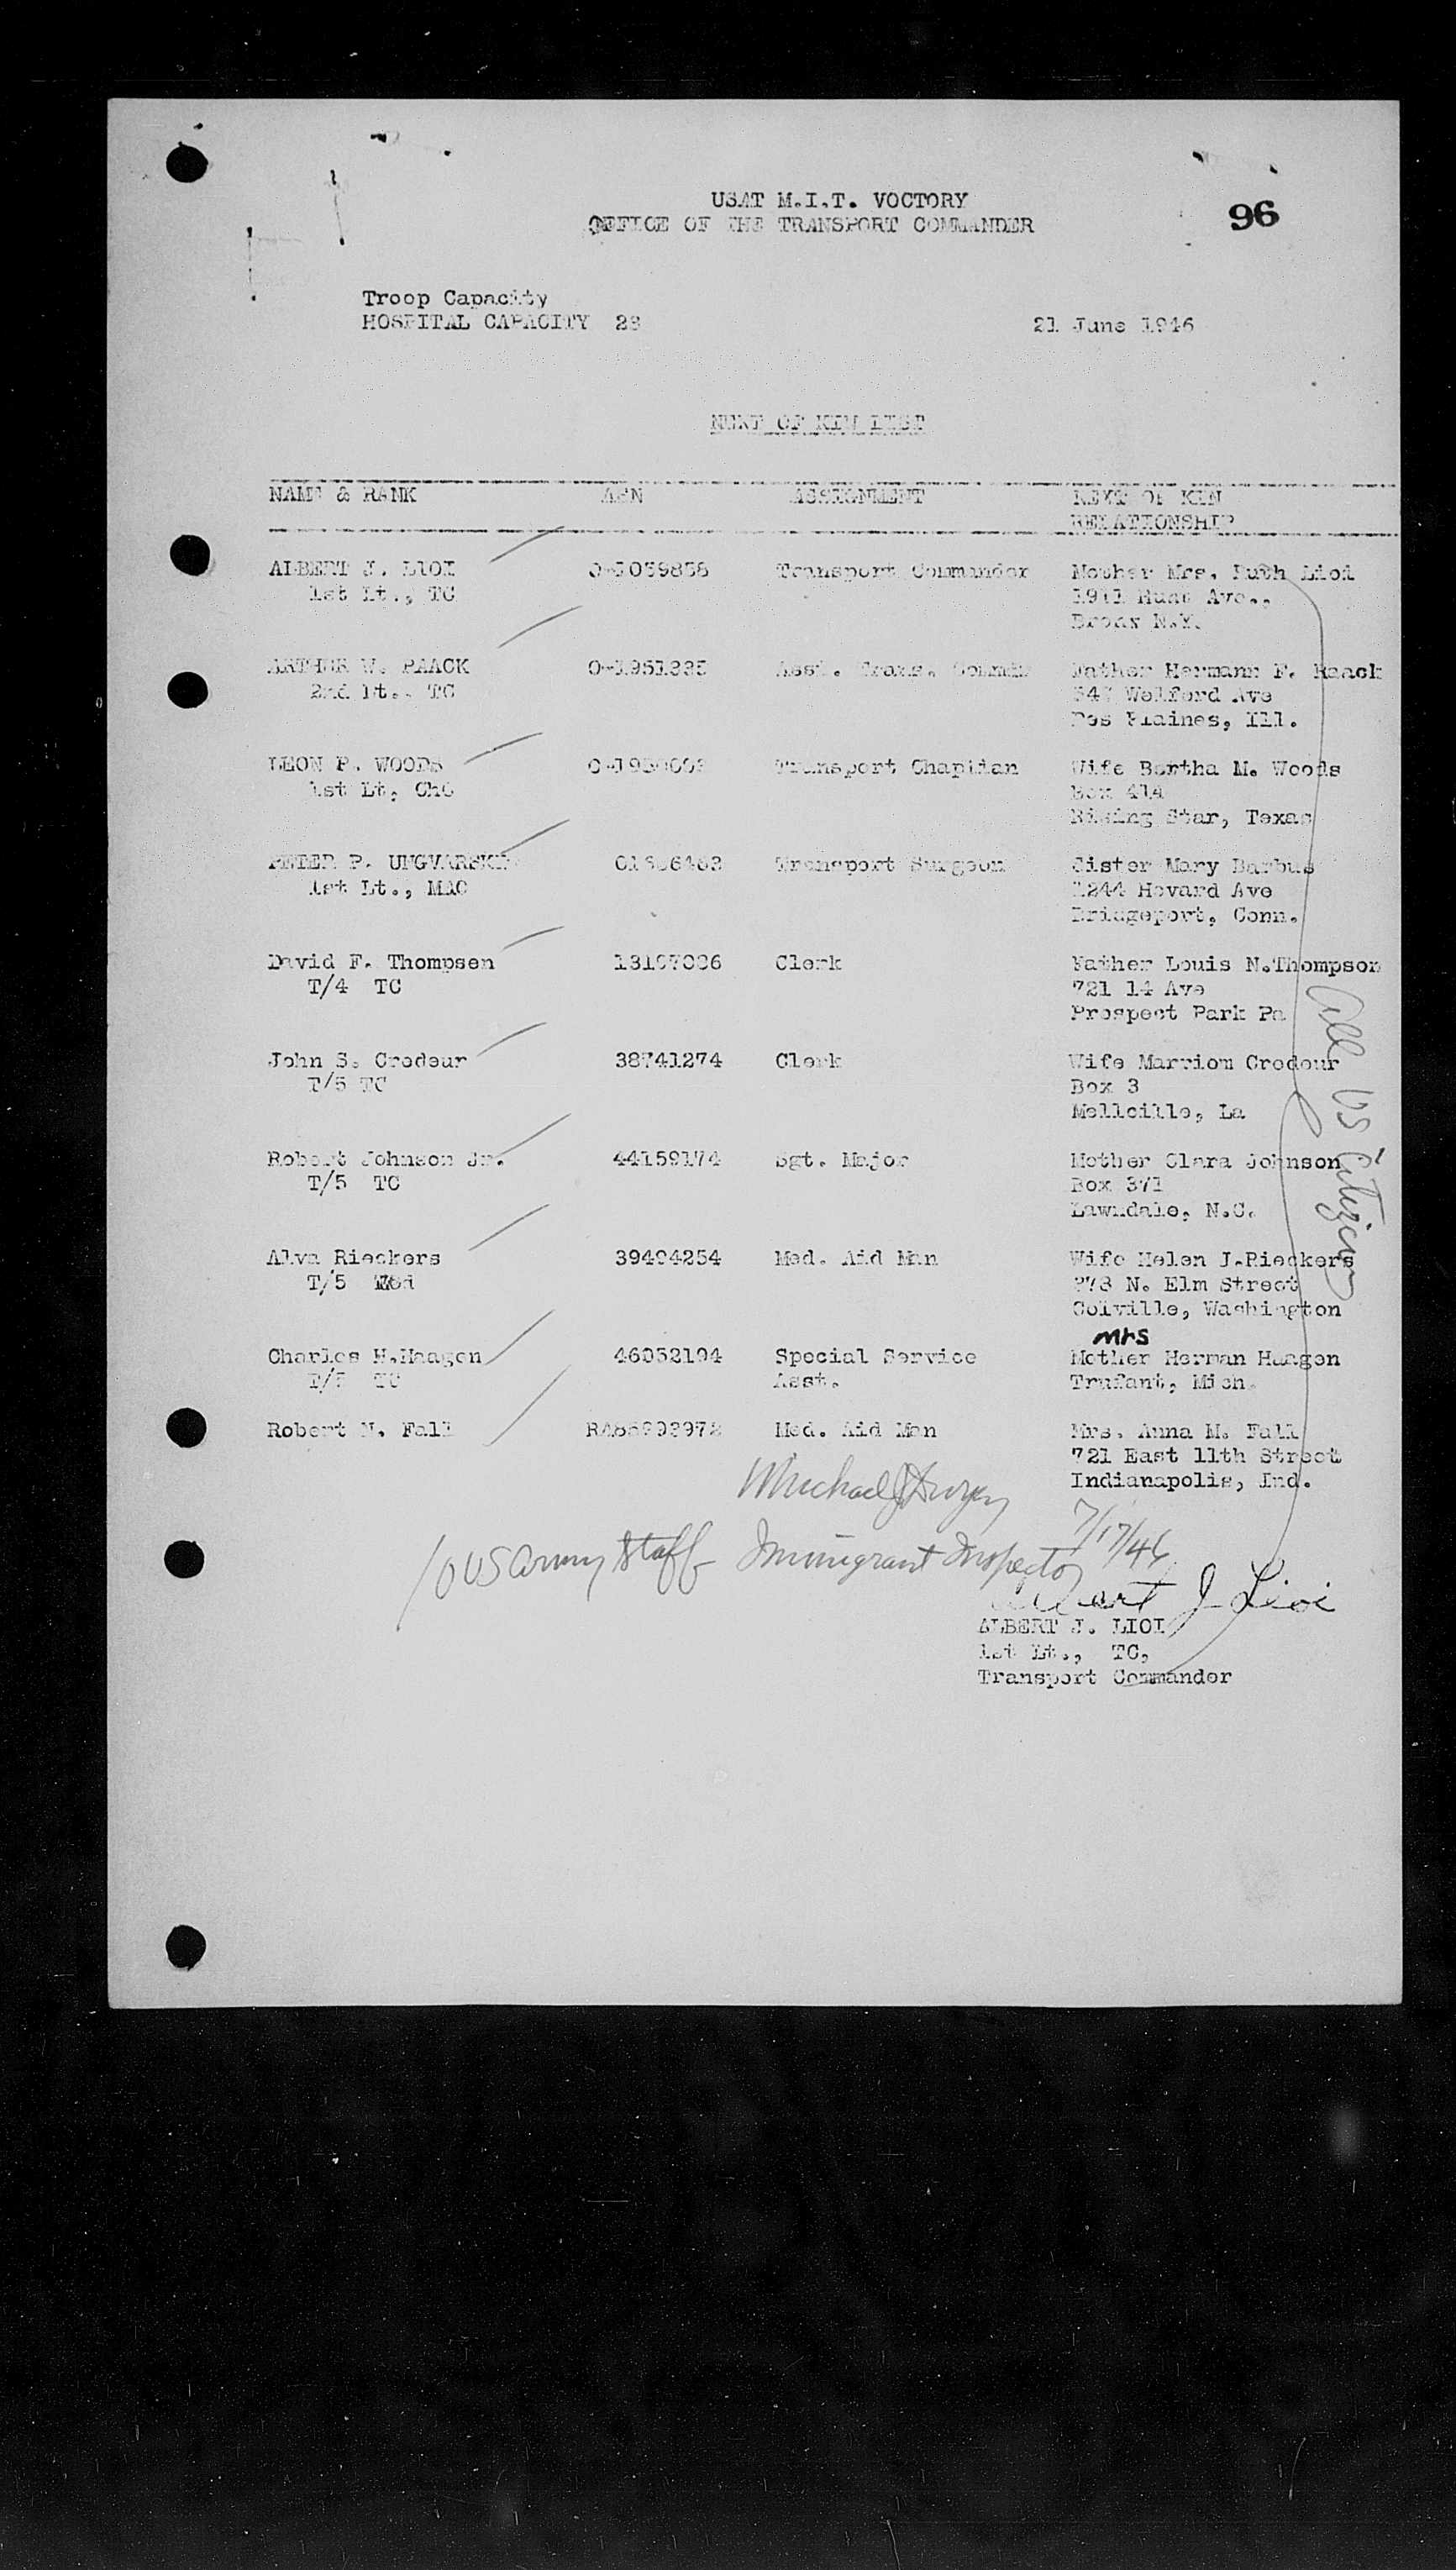 USAT M.I.T. VOCTORY
OFFICE OF THE TRANSPORT COMMANDER
96
Troop Capacity
HOSPITAL CAPACITY 28
21 June 1946
NEXT OF KIN LIST
NAME & RANK ASN ASSIGNMENT NEXT OF KIN
RELATIONSHIP
ALBERT J. LIOI O-1059858 Transport Commander Mother Mrs. Ruth Lioi
1st Lt., TC 1911 Hunt Ave.,
Bronx N.Y.
ARTHUR W. RAACK O-1951335 Asst. Trans. Father Hermann F. Raack
2nd Lt., TC Welford Ave
Des Plaines, Ill.
LEON P. WOODS Transport Chaplian Wife Bertha M. Woods
1st Lt, ChC Box 414
Rising Star, Texas
PETER P. Transport Surgeon Sister Mary Barbus
1st Lt., MAC 1244 Hovard Ave
Bridgeport, Conn.
David F. Thompsen Clerk Father Louis N.Thompson
T/4 TC 721 14 Ave
Prospect Park Pa
John S. Credeur 38741274 Clerk Wife Marriom Credeur
T/5 TC Box 3
Mellcille, La
Robert Johnson Jr. 44159174 Sgt. Major Mother Clara Johnson
T/5 TC Box 371
Lawndale, N.C.
Alva Rieckers 39494254 Med. Aid Man Wife Helen J.Rieckers
T/5 Med 373 N. Elm Street
Colville, Washington
mrs
Charles H.Haagen 46052194 Special Service Mother Herman Haagen
T/5 TC Asst. Trufant, Mich.
Robert N. Fall Med. Aid Man Mrs. Anna M. Fall
721 East 11th Street
Indianapolis, Ind.
All US Citizens
Michael J Dwyer
7/17/46
10 US Army Staff Immigrant Inspector
Albert J Lioi
ALBERT J. LIOI
1st Lt., TC,
Transport Commander